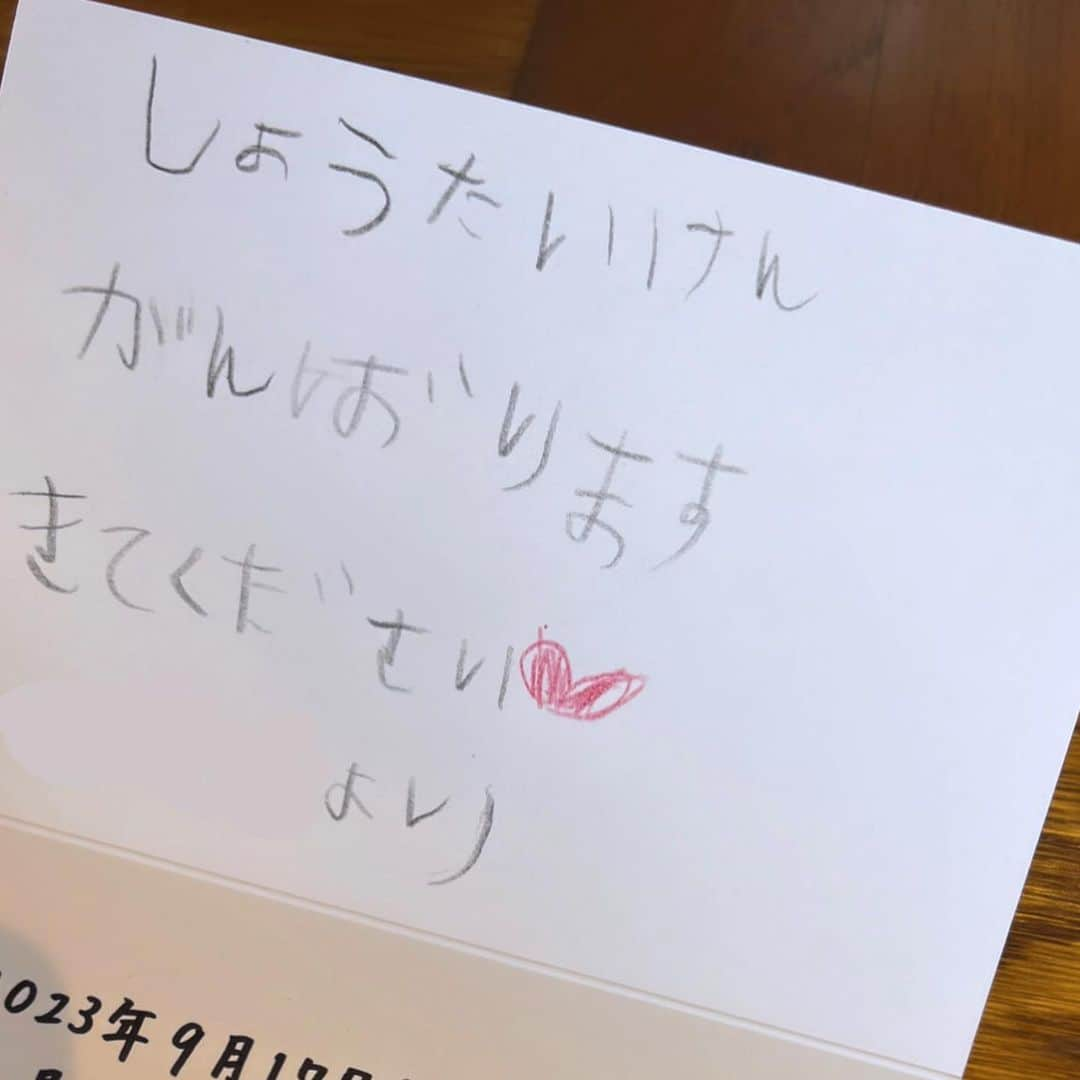 しょうたいけん
がんばります
きてくださいい
より
2023年9月17日